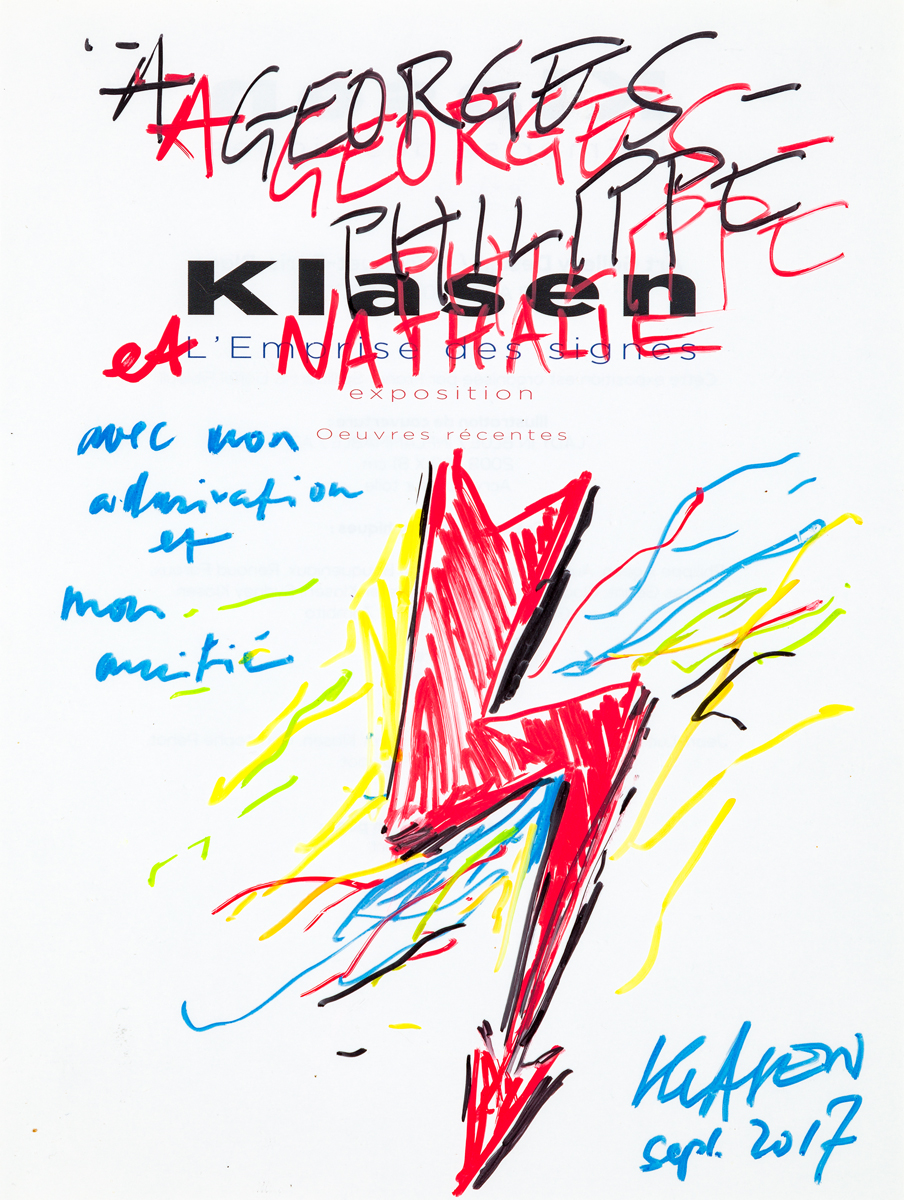 A GEORGES-
A GEORGES-
PHILIPPE
PHILIPPE
Klasen
et NATHALIE
L'Emprise des signes
exposition
Oeuvres récentes
avec mon
admiration
et
mon
amitié
KLASEN
sept. 2017